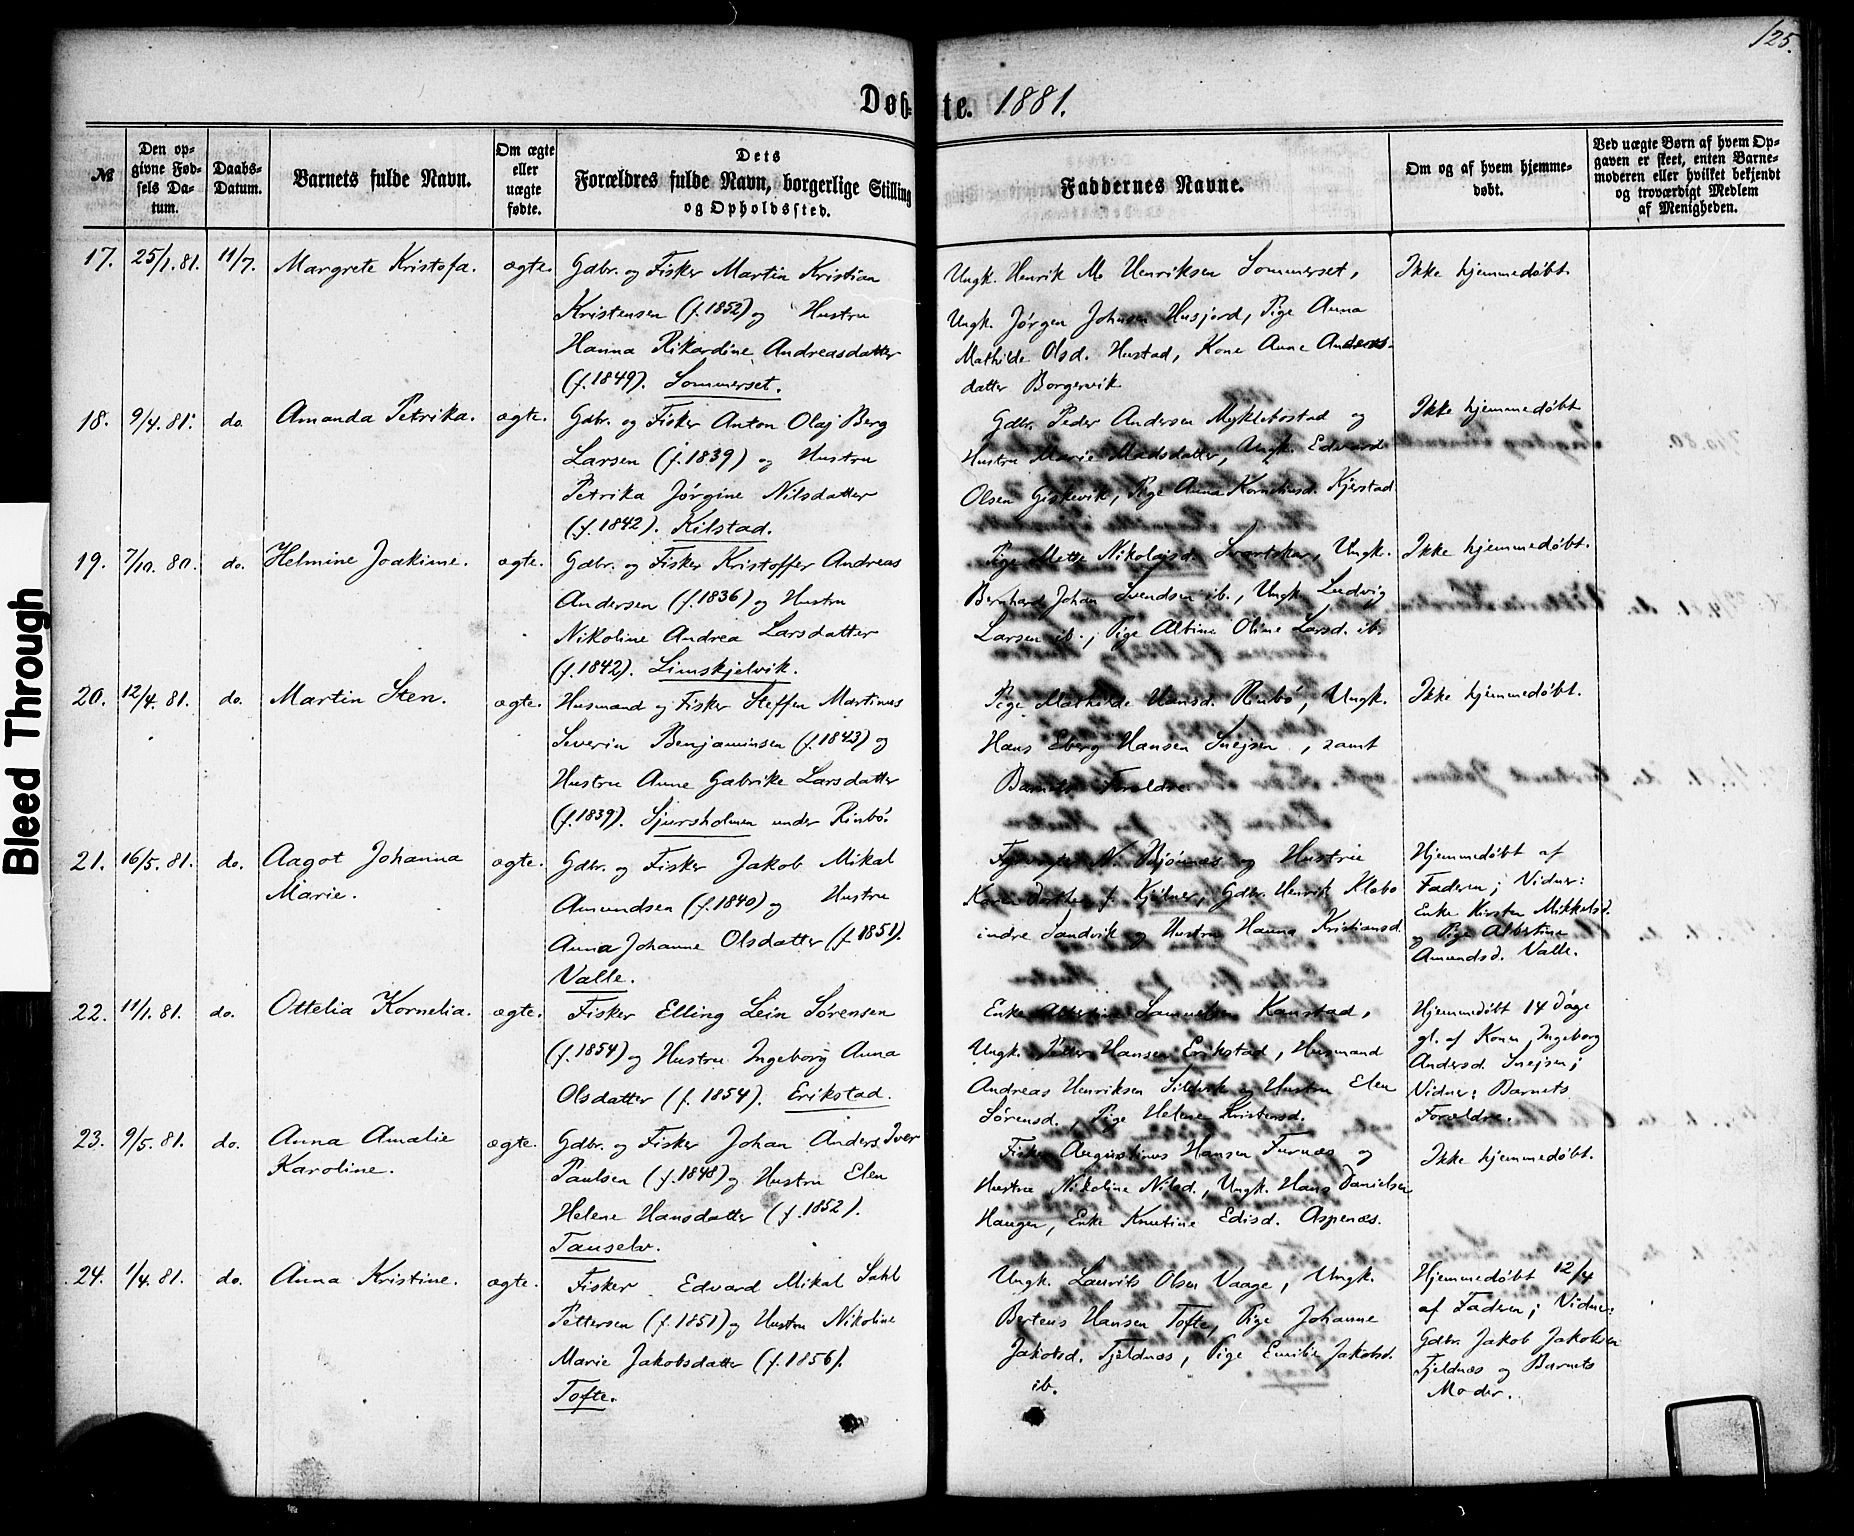 125.
Døbte. 1881.
№
Den opgivne Fødsels Datum.
Daabs-Datum.
Barnets fulde Navn.
Om ægte eller uægte fødte.
Dets Forældres fulde Navn, borgerlige Stilling og Opholdssted.
Faddernes Navne.
Om og af hvem hjemmedøbt.
Ved uægte Børn af hvem Opgaven er skeet, enten Barnemoderen eller hvilket bekjendt og troværdigt Medlem af Menigheden.
17. 25/1.81. 11/7. Margrete Kristofa. ægte.
Gdbr. og Fisker Martin Kristian
Kristensen (f. 1852) og Hustru
Hanna Rikardine Andreasdatter
(f. 1849). Sommerset.
Ungk. Henrik M. Henriksen Sommerset,
Ungk. Jørgen Johnsen Husjord, Pige Anna
Mathilde Olsd. Hustad, Kone Anne Anders-
datter Borgervik
Ikke hjemmedøbt.
18. 9/4.81. do. Amanda Petrika. ægte.
Gdbr. og Fisker Anton Olaj Berg
Larsen (f. 1839) og Hustru
Petrika Jørgine Nilsdatter
(f. 1842). Kilstad.
Gdbr. Peder Andersen Myklebostad og
Hustru Marie Madsdatter, Ungk. Edvard
Olsen Giskevik, Pige Anna Korneliusd. Kjerstad
Ikke hjemmedøbt
19. 7/10.80. do. Helmine Joakime. ægte.
Gdbr. og Fisker Kristoffer Andreas
Andersen (f. 1836) og Hustru
Nikoline Andrea Larsdatter
(f. 1842). Limskjelvik.
Pige Mette Nikolajsd. Svartskar, Ungk.
Bernhard Johan Svendsen ib., Ungk. Ludvig
Larsen ib., Pige Albine Oline Larsd. ib.
Ikke hjemmedøbt.
20. 12/4.81. do. Martin Sten. ægte.
Husmand og Fisker Steffen Martinus
Severin Benjaminsen (f. 1843) og
Hustru Anne Gabrike Larsdatter
(f. 1839). Sjursholmen under Rinbø.
Pige Mathilde Hansd. Rinbø, Ungk.
Hans Eberg Hansen Snejsen, samt
Barnets Forældre.
Ikke hjemmedøbt.
21. 16/5.81. do. Aagot Johanna
Marie. ægte.
Gdbr. og Fisker Jakob Mikal
Amundsen (f. 1840) og Hustru
Anna Johanne Olsdatter (f. 1851).
Valle.
N. og Hustru
f. Kjølner, Gdbr. Henrik Klæbo
indre Sandvik og Hustru Hanna Kristiansd.
Hjemmedøbt af
Faderen; Vidner:
Enke Kirsten Mikkelsd.
og Pige Albertine
Amundsd. Valle.
22. 11/1.81. do. Ottelia Kornelia. ægte.
Fisker Elling Lein Sørensen
(f. 1854) og Hustru Ingeborg Anna
Olsdatter (f. 1854). Erikstad.
Enke Albertine Samuelsen Kanstad,
Ungk. Peder Hansen Erikstad, Husmand
Andreas Henriksen Sildvik og Hustru Elen
Sørensd., Pige Helene Kristensd.
Hjemmedøbt 14 Dage
gl. af Konen Ingeborg
Andersd. Snejsen;
Vidner: Barnets
Forældre.
23. 9/5.81. do. Anna Amalie
Karoline. ægte.
Gdbr. og Fisker Johan Anders Iver
Paulsen (f. 1848) og Hustru Elen
Helene Hansdatter (f. 1852).
Tauselv.
Fisker Augustinus Hansen Furnæs og
Hustru Nikoline Nilsd., Ungk. Hans Danielsen
Haugen, Enke Knutine Edisd. Aspenæs.
Ikke hjemmedøbt.
24. 1/4.81. do. Anna Kristine. ægte.
Fisker Edvard Mikal Dahl
Pettersen (f. 1851) og Hustru Nikoline
Marie Jakobsdatter (f. 1856).
Tofte.
Ungk. Laurits Olsen Vaage, Ungk.
Bertens Hansen Tofte, Pige Johanne
Jakobsd. Fjeldnæs, Pige Emilie Jakobsd.
ib.
Hjemmedøbt 12/4
af Faderen; Vidner:
Gdbr. Jakob Jakobsen
Fjeldnæs og Barnets
Moder.
Bleed Through